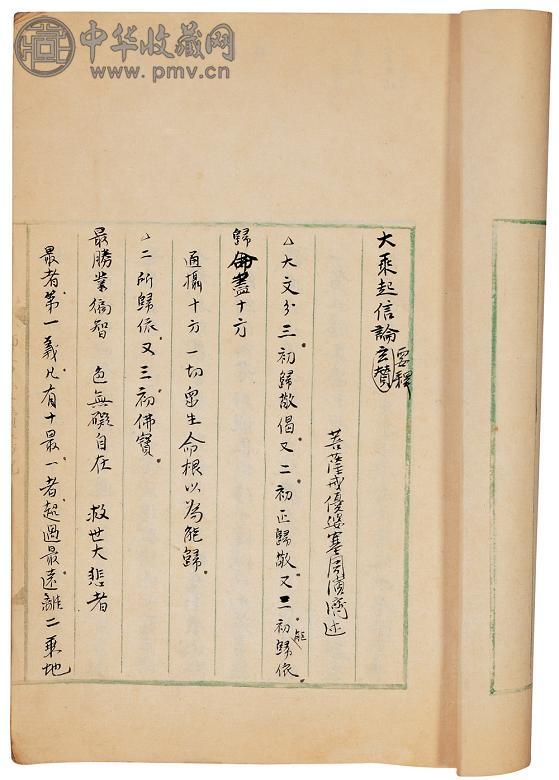 中华收藏网
www.pmv.cn
大乘起信論玄贊
要釋
菩薩戒優婆塞周演濟述
△大文分三初歸敬偈又二初正歸敬又三初歸依
能
歸命盡十方
通攝十方一切眾生命根以為能歸
△二所歸依又三初佛寶
最勝業徧智 色無礙自在 救世大悲者
最者第一義凡有十最一者超過最遠離二乘地